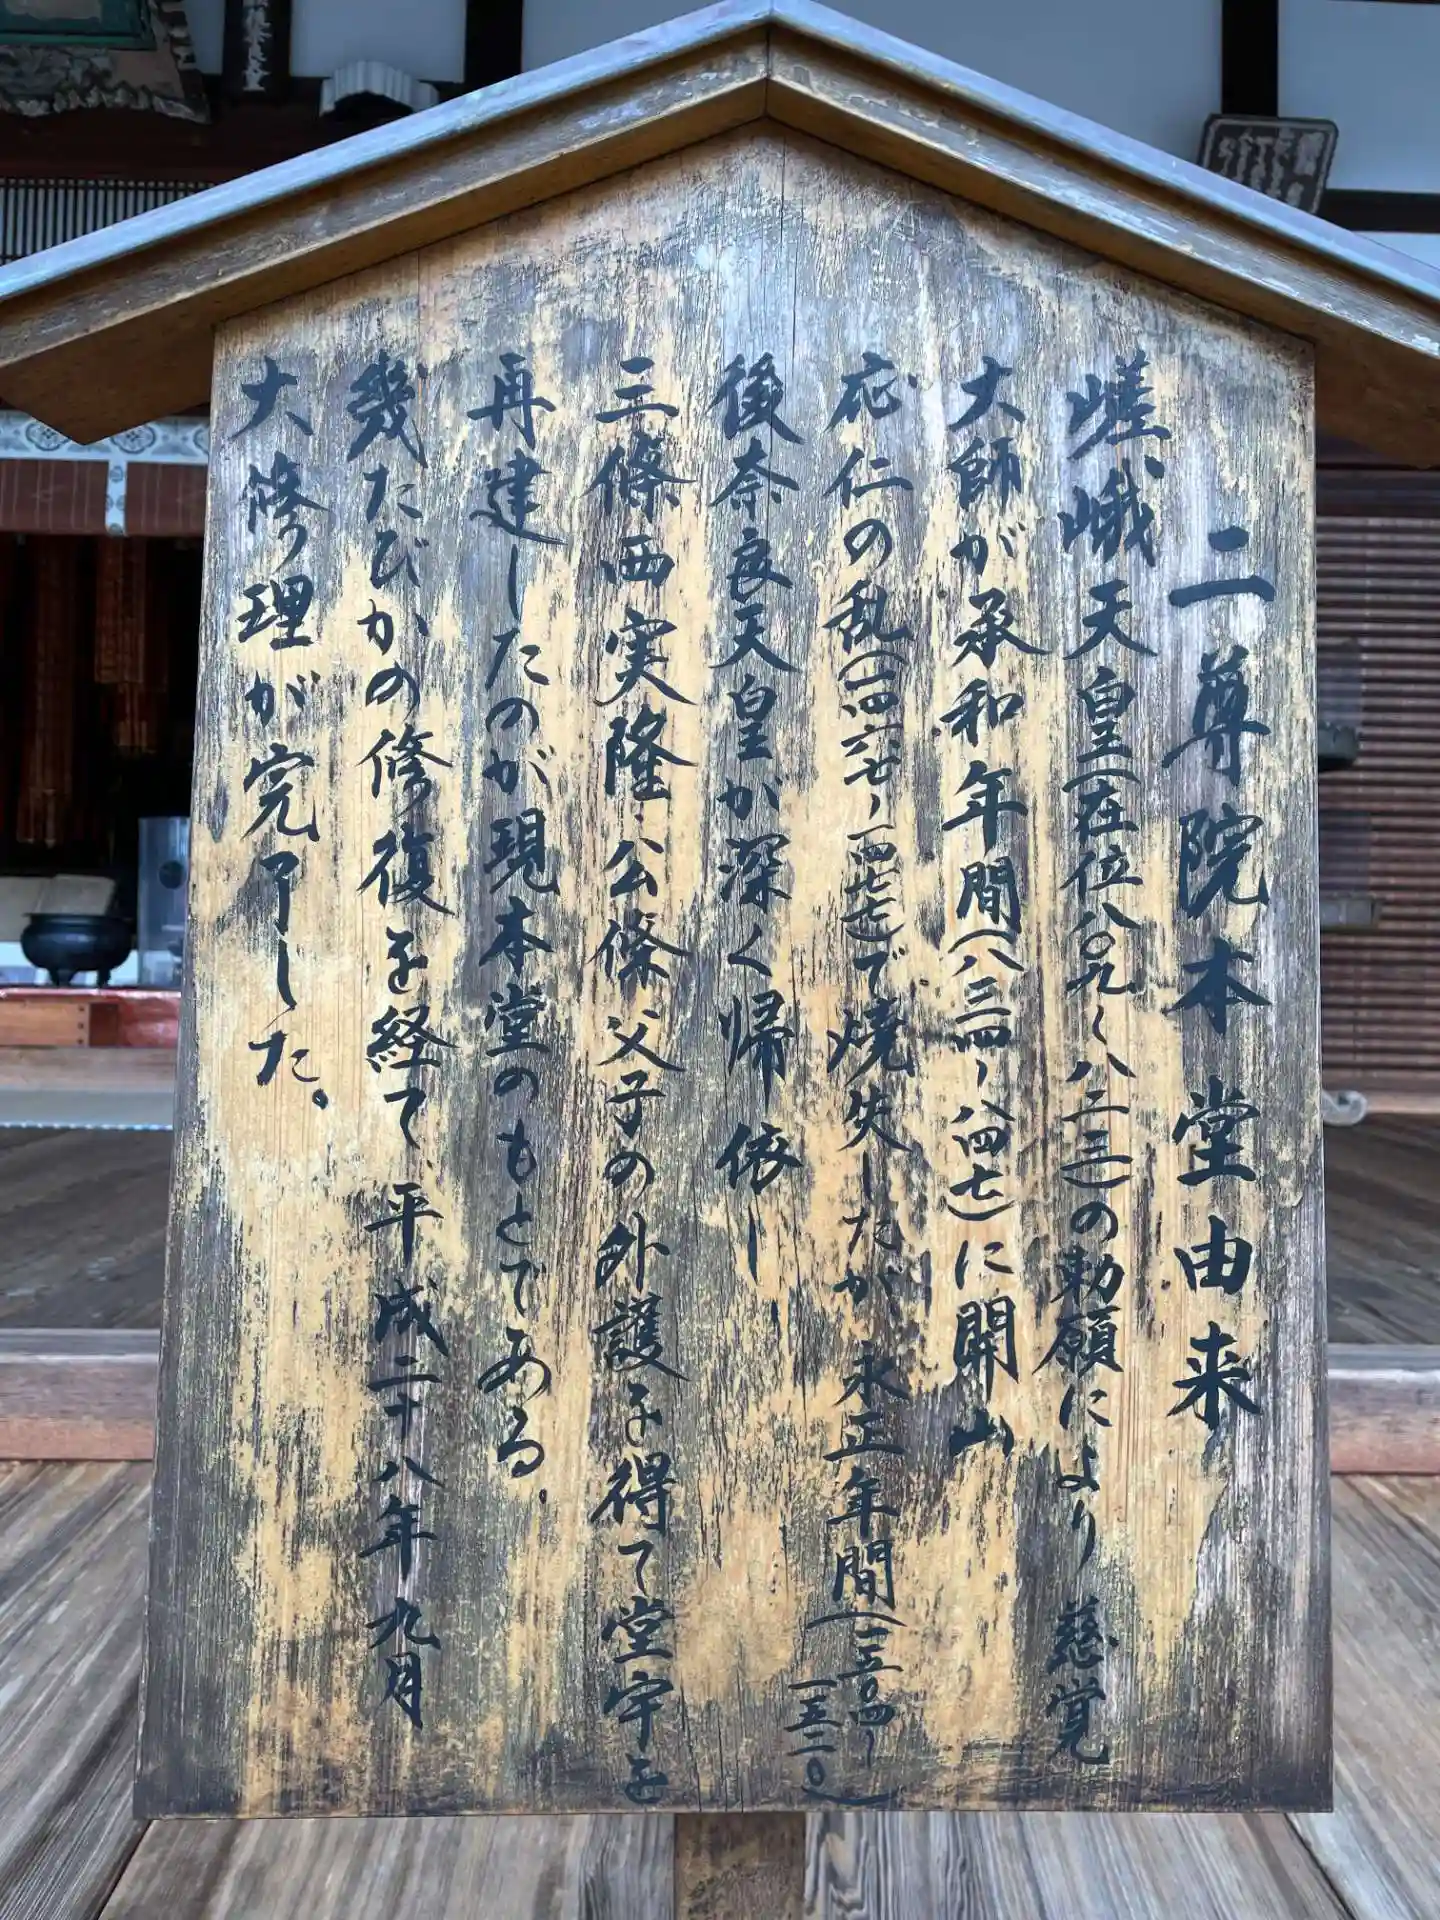 二尊院本堂由来
嵯峨天皇(在位八〇九〜八二三)の勅願により慈覚
大師が承和年間(八三四〜八四七)に開山
応仁の乱(一四六七〜一四七七)で焼失したが、永正年間(一五〇四〜一五二〇)
後奈良天皇が深く帰依し
三條西実隆・公條父子の外護を得て堂宇を
再建したのが現本堂のもとである。
幾たびかの修復を経て、平成二十八年九月
大修理が完了した。